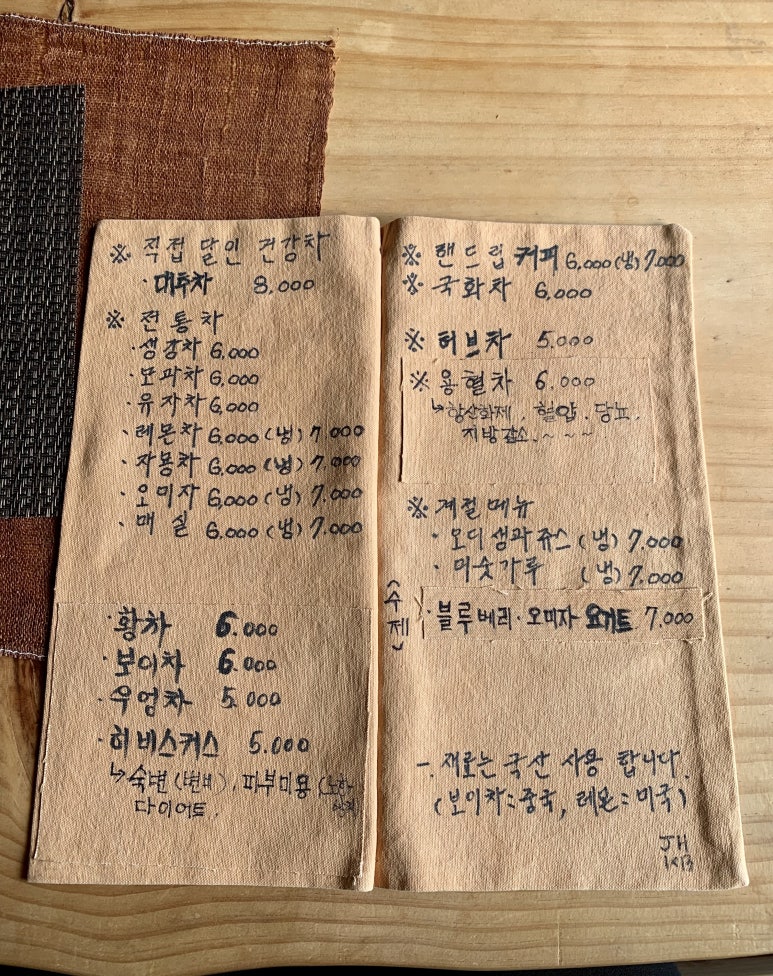 ※ 직접 달인 건강차
· 대추차 8,000
※ 전통차
· 생강차 6,000
· 모과차 6,000
· 유자차 6,000
· 레몬차 6,000 (냉) 7.000
· 자몽차 6,000 (냉) 7.000
· 오미자 6,000 (냉) 7.000
· 매실 6.000 (냉) 7.000
· 황차 6.000
· 보이차 6.000
· 우엉차 5.000
· 히비스커스 5.000
↳ 숙변 (변비), 피부미용 (노화
다이어트.
※ 핸드립 커피 6,000 (냉) 7.000
※ 국화차 6,000
※ 허브차 5.000
※ 용혈차 6.000
↳ 항산화제, 혈압. 당뇨.
지방감소. ~ ~ ~
※ 계절메뉴
· 오디생과쥬스 (냉) 7.000
· 미숫가루 (냉) 7.000
(수제)
· 블루베리·오미자 요거트 7,000
-. 재료는 국산 사용 합니다.
(보이차:중국, 레몬:미국)
JH